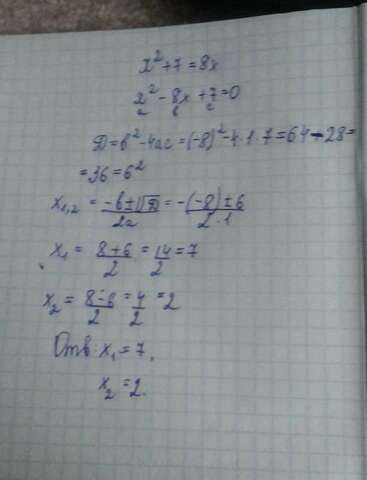 x² + 7 = 8x
x² - 8x + 7 = 0
a в c
D = в² - 4ac = (-8)² - 4·1·7 = 64 - 28 =
= 36 = 6²
x₁,₂ = (-в ± √D)/2a = (-(-8) ± 6)/2·1
x₁ = (8+6)/2 = 14/2 = 7
x₂ = (8-6)/2 = 4/2 = 2
Отв: x₁ = 7,
x₂ = 2.